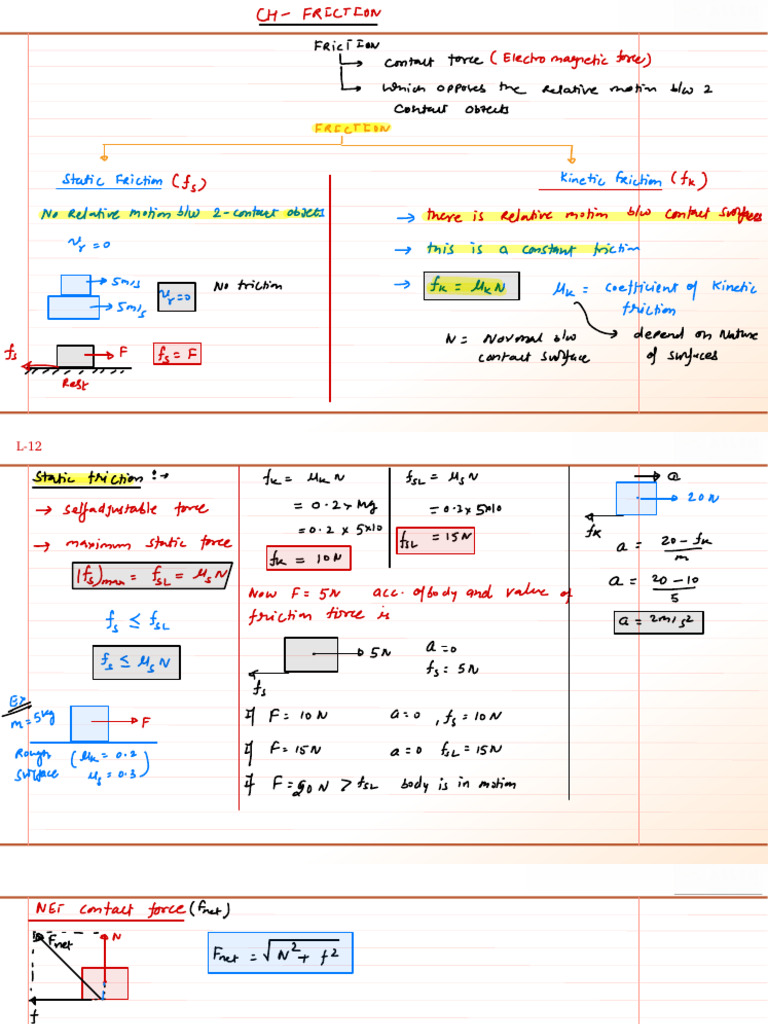 CH- FRICTION
FRICTION
contact force (Electromagnetic force)
which opposes the relative motion b/w 2
contact objects
FRICTION
Static Friction (fs)
No Relative motion b/w 2-contact objects
vr = 0
5m/s
5m/s
vr=0
No friction
fs
F
fs = F
Rest
Kinetic friction (fK)
there is relative motion b/w contact surfaces
this is a constant friction
fK = μK N
μK = coefficient of Kinetic
friction
N = Normal b/w
contact surface
depend on Nature
of surfaces
L-12
Static friction :→
→ selfadjustable force
→ maximum static force
(fs)max = fSL = μs N
fs ≤ fSL
fs ≤ μs N
Ex
m=5kg
F
Rough
surface
(μK = 0.2
μs = 0.3)
fK = μK N
= 0.2 × mg
= 0.2 × 5×10
fK = 10N
fSL = μs N
= 0.3× 5×10
fSL = 15N
Now F = 5N acc. of body and value of
friction force is
5N
fs
a=0
fs = 5N
if F = 10N a=0 , fs = 10N
if F = 15N a=0 fSL = 15N
if F = 20N > fSL body is in motion
a
20N
fK
a = 20 - fK / m
a = 20 - 10 / 5
a = 2m/s²
NET contact force (Fnet)
Fnet
N
f
Fnet = √N² + f²